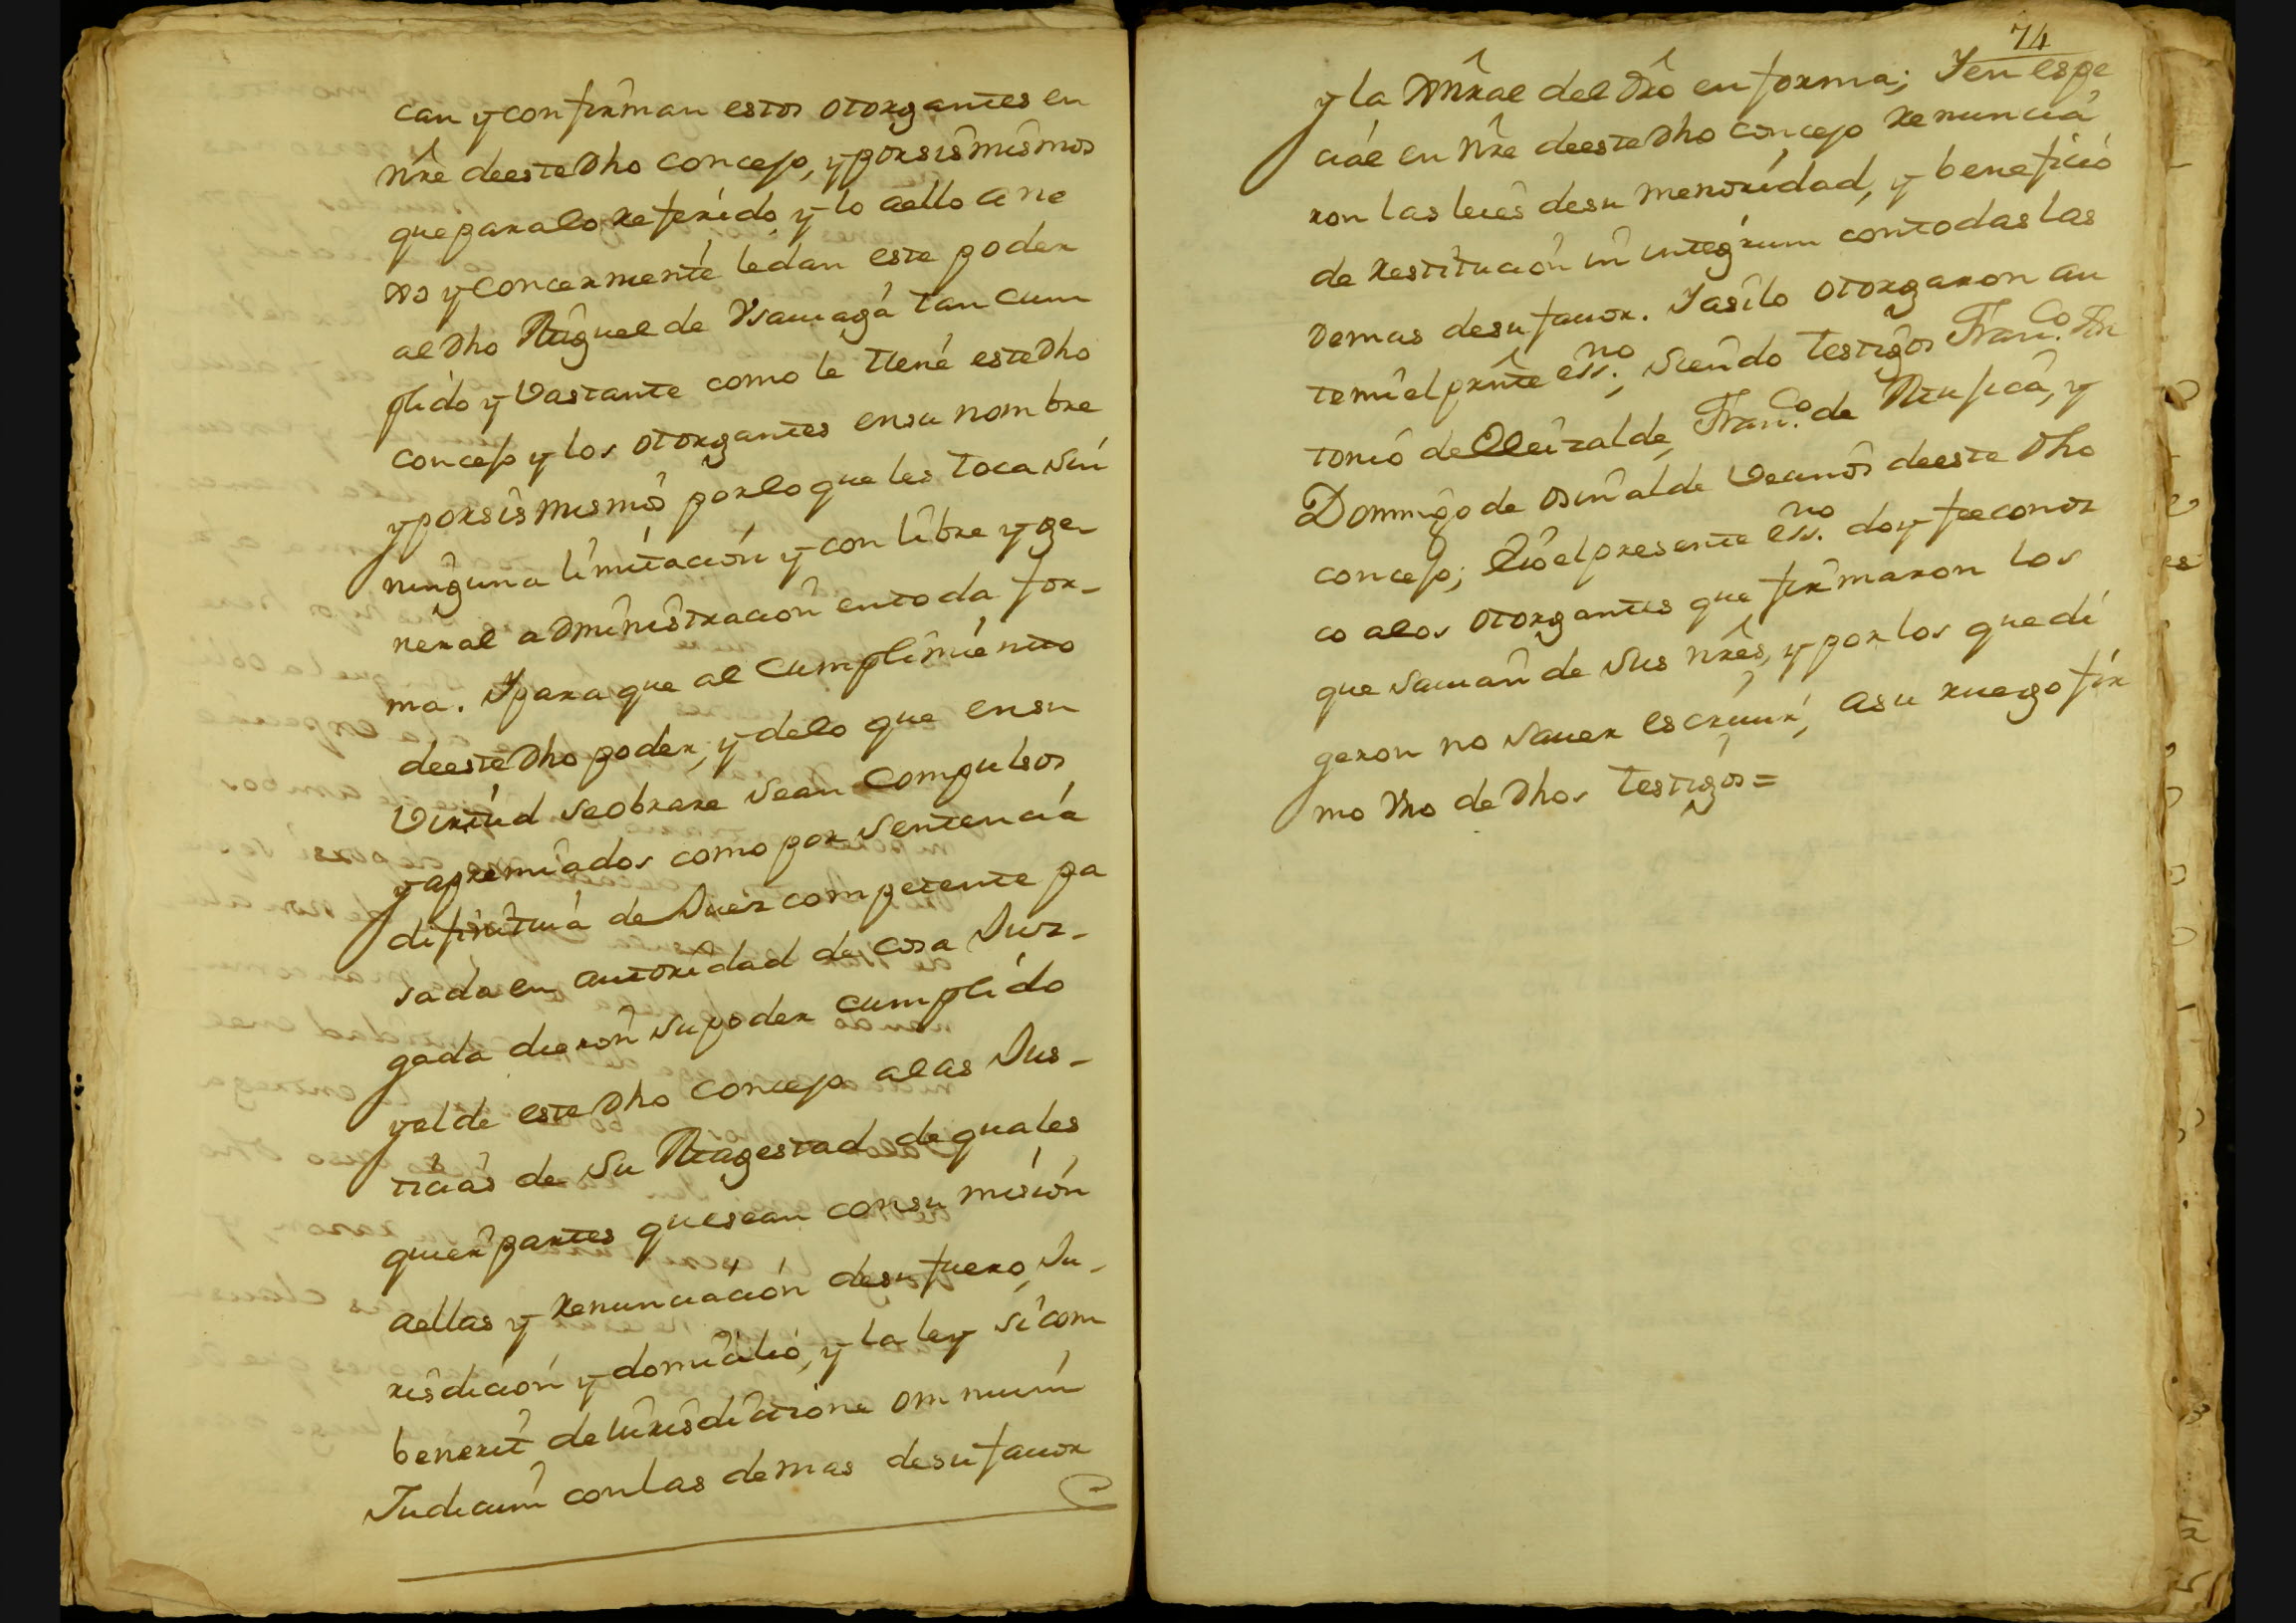 can y confirman estos otorgantes en
nre deeste Dho concejo, y porsis mismos
que paralo Referido, y lo aello ane
xo y Concernente ledan este poder
al Dho Miguel de Vsauiaga tan cum
plido y Vastante como le tiene este Dho
concejo y los otorgantes ensu nombre
y porsis mismos porlo que les toca sin
ninguna limitacion y con libre y ge
neral administracion entoda for-
ma. Y para que al Cumplimiento
deeste Dho poder, y delo que ensu
Virtud seobrare sean Compulsos
y apremiados como por sentencia
difinitiua de Juez competente pa
sada en autoridad de cosa Juz-
gada dieron su poder cumplido
y el de este Dho Concejo alas Jus-
ticias de Su Magestad de quales
quier partes que sean consu mision
aellas y Renunciacion desu fuero, Ju-
risdicion y domicilio, y la ley si com
benerit de Iurisdictione omnium
Judicum conlas demas desu fauor
74
y la Gnral del Dro en forma; Y en espe
cial en Nre deeste Dho Concejo Renuncia
ron las leies desu menoridad, y beneficio
de Restitucion in integrum contodas las
demas desu fauor. Y asilo otorgaron an
temi el prnte essno, siendo testigos Franco An
tonio de Oleizalde, Franco de Mu, y
Domingo de osinalde Vecinos deeste Dho
concejo; Eio el presente essno doy fee conoz
co alos otorgantes que firmaron los
que sauian de sus nres, y por los que di
geron no sauer escriuir, asu ruego fir
mo Vno de Dhos testigos=